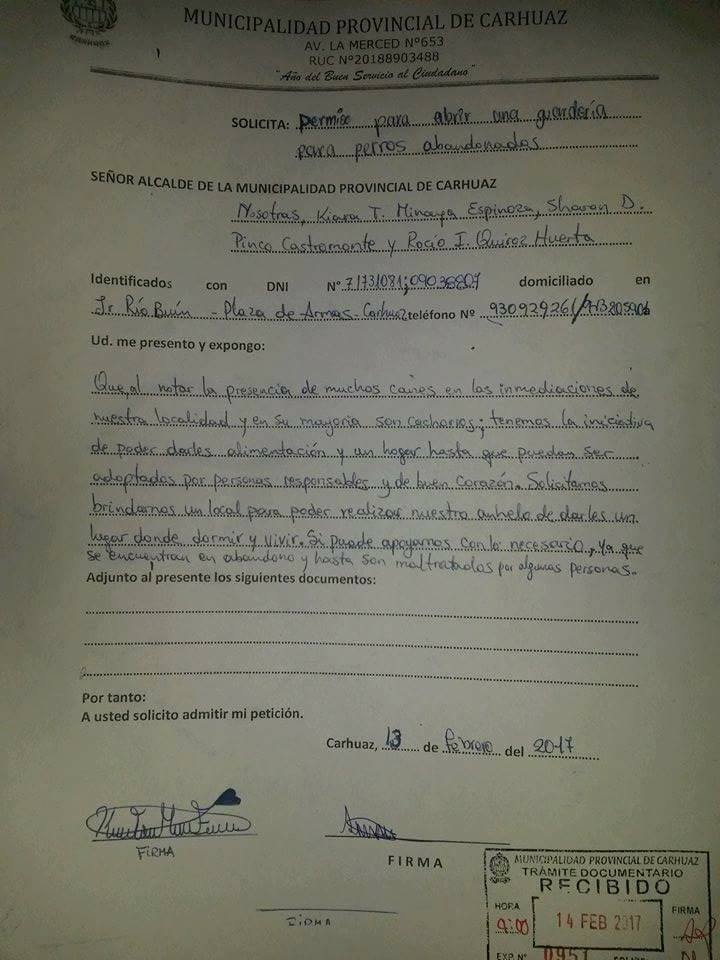 CARHUAZ
MUNICIPALIDAD PROVINCIAL DE CARHUAZ
AV. LA MERCED Nº653
RUC Nº20188903488
"Año del Buen Servicio al Ciudadano"
SOLICITA: Permiso para abrir una guardería
para perros abandonados
SEÑOR ALCALDE DE LA MUNICIPALIDAD PROVINCIAL DE CARHUAZ
Nosotras, Kiara T. Minaya Espinoza, Sharon D.
Pinco Castramonte y Rocío I. Quiroz Huerta
Identificados con DNI Nº 71731081; domiciliado en
Jr Río Buín - Plaza de Armas - Carhuaz teléfono Nº 930929261/
Ud. me presento y expongo:
Que, al notar la presencia de muchos canes en las inmediaciones de
nuestra localidad y en su mayoría son cachorros; tenemos la iniciativa
de poder darles alimentación y un hogar hasta que puedan ser
adoptados por personas responsables y de buen corazón. Solicitamos
brindarnos un local para poder realizar nuestro anhelo de darles un
lugar donde dormir y vivir. Si puede apoyarnos con lo necesario, ya que
se encuentran en abandono y hasta son maltratados por algunas personas.
Adjunto al presente los siguientes documentos:
Por tanto:
A usted solicito admitir mi petición.
Carhuaz, 13 de febrero del 2017
FIRMA
FIRMA
FIRMA
MUNICIPALIDAD PROVINCIAL DE CARHUAZ
TRÁMITE DOCUMENTARIO
RECIBIDO
HORA
FIRMA
9:00
14 FEB 2017
EXP. Nº 0951